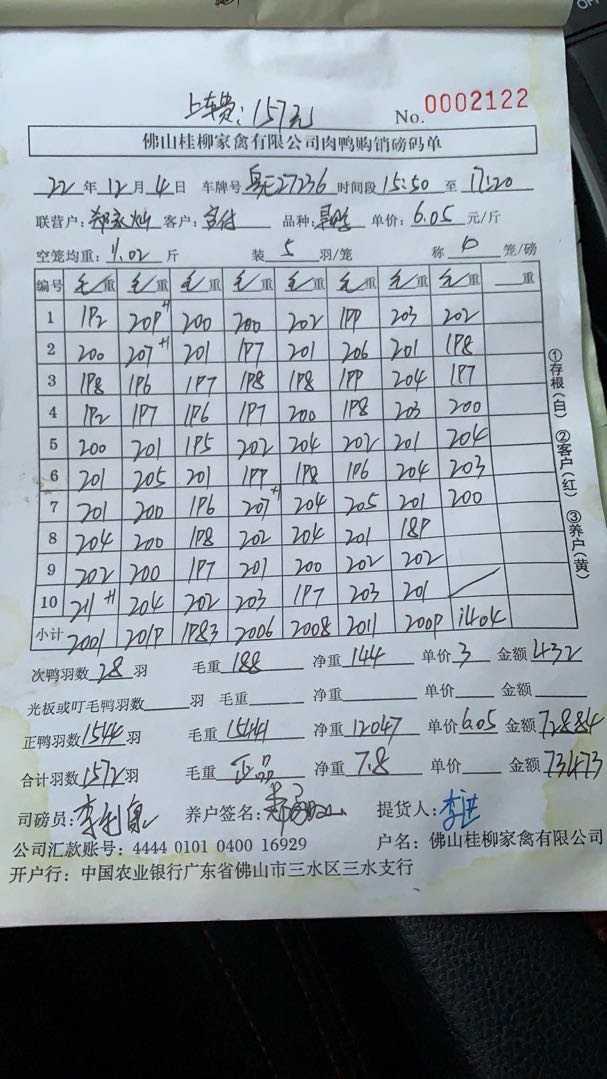 上车费：157元
No. 0002122
佛山桂柳家禽有限公司肉鸭购销磅码单
22年12月4日 车牌号 27236 时间段 15:50 至 17:20
联营户： 客户： 品种： 单价：6.05元/斤
空笼均重：11.02斤 装 5 羽/笼 称 10 笼/磅
编号 毛重 毛重 毛重 毛重 毛重 毛重 毛重 毛重 重
1 192 209+1 200 200 202 199 203 202
2 200 207+1 201 197 201 206 201 198
3 198 196 197 198 198 199 204 197
4 192 197 196 197 200 198 203 200
5 200 201 195 202 204 202 201 204
6 201 205 201 199 198 196 204 203
7 201 200 196 207+1 204 205 201 200
8 204 200 198 202 204 201 189
9 202 200 197 201 200 202 202
10 211+1 204 202 203 197 203 201
小计 2001 2019 1983 2006 2008 2011 2009 1404
次鸭羽数 28 羽 毛重 188 净重 144 单价 3 金额 432
光板或叮毛鸭羽数 羽 毛重 净重 单价 金额
正鸭羽数 1544 羽 毛重 15441 净重 12047 单价 6.05 金额 72884
合计羽数 1572 羽 毛重 正品 净重 7.8 单价 金额 73473
司磅员： 养户签名： 提货人：李进
公司汇款账号：4444 0101 0400 16929 户名：佛山桂柳家禽有限公司
开户行：中国农业银行广东省佛山市三水区三水支行
①存根(白) ②客户(红) ③养户(黄)